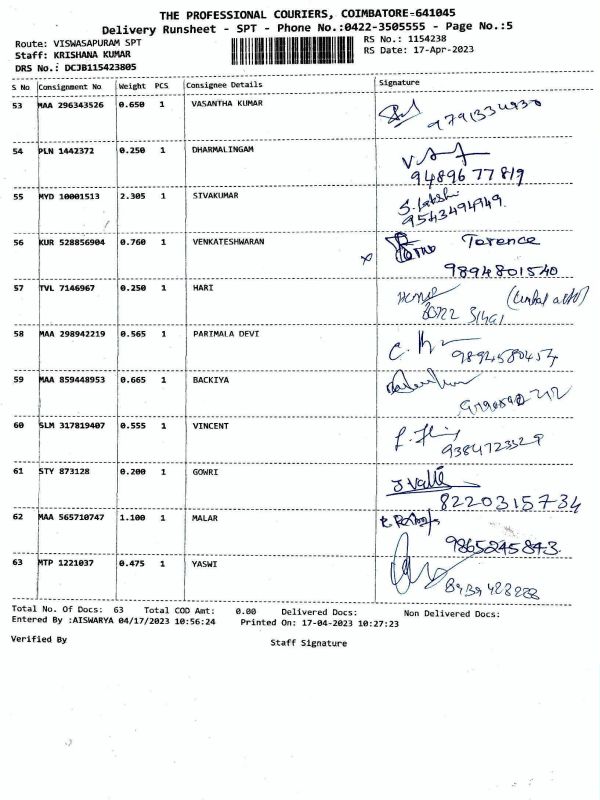 THE PROFESSIONAL COURIERS, COIMBATORE-641045
Delivery Runsheet - SPT - Phone No.:0422-3505555 - Page No.:5
Route: VISWASAPURAM SPT
RS No.: 1154238
Staff: KRISHANA KUMAR
RS Date: 17-Apr-2023
DRS No.: DCJB115423805
S No Consignment No Weight PCS Consignee Details Signature
53 MAA 296343526 0.650 1 VASANTHA KUMAR
54 PLN 1442372 0.250 1 DHARMALINGAM
9489677819
55 MYD 10001513 2.305 1 SIVAKUMAR
9543494949.
56 KUR 528856904 0.760 1 VENKATESHWARAN Terence
9894801540
57 TVL 7146967 0.250 1 HARI
58 MAA 298942219 0.565 1 PARIMALA DEVI
9894580454
59 MAA 859448953 0.665 1 BACKIYA
60 SLM 317819407 0.555 1 VINCENT
9384723329
61 STY 873128 0.200 1 GOWRI
8220315734
62 MAA 565710747 1.100 1 MALAR
9865245843.
63 MTP 1221037 0.475 1 YASWI
Total No. Of Docs: 63 Total COD Amt: 0.00 Delivered Docs: Non Delivered Docs:
Entered By :AISWARYA 04/17/2023 10:56:24 Printed On: 17-04-2023 10:27:23
Verified By Staff Signature